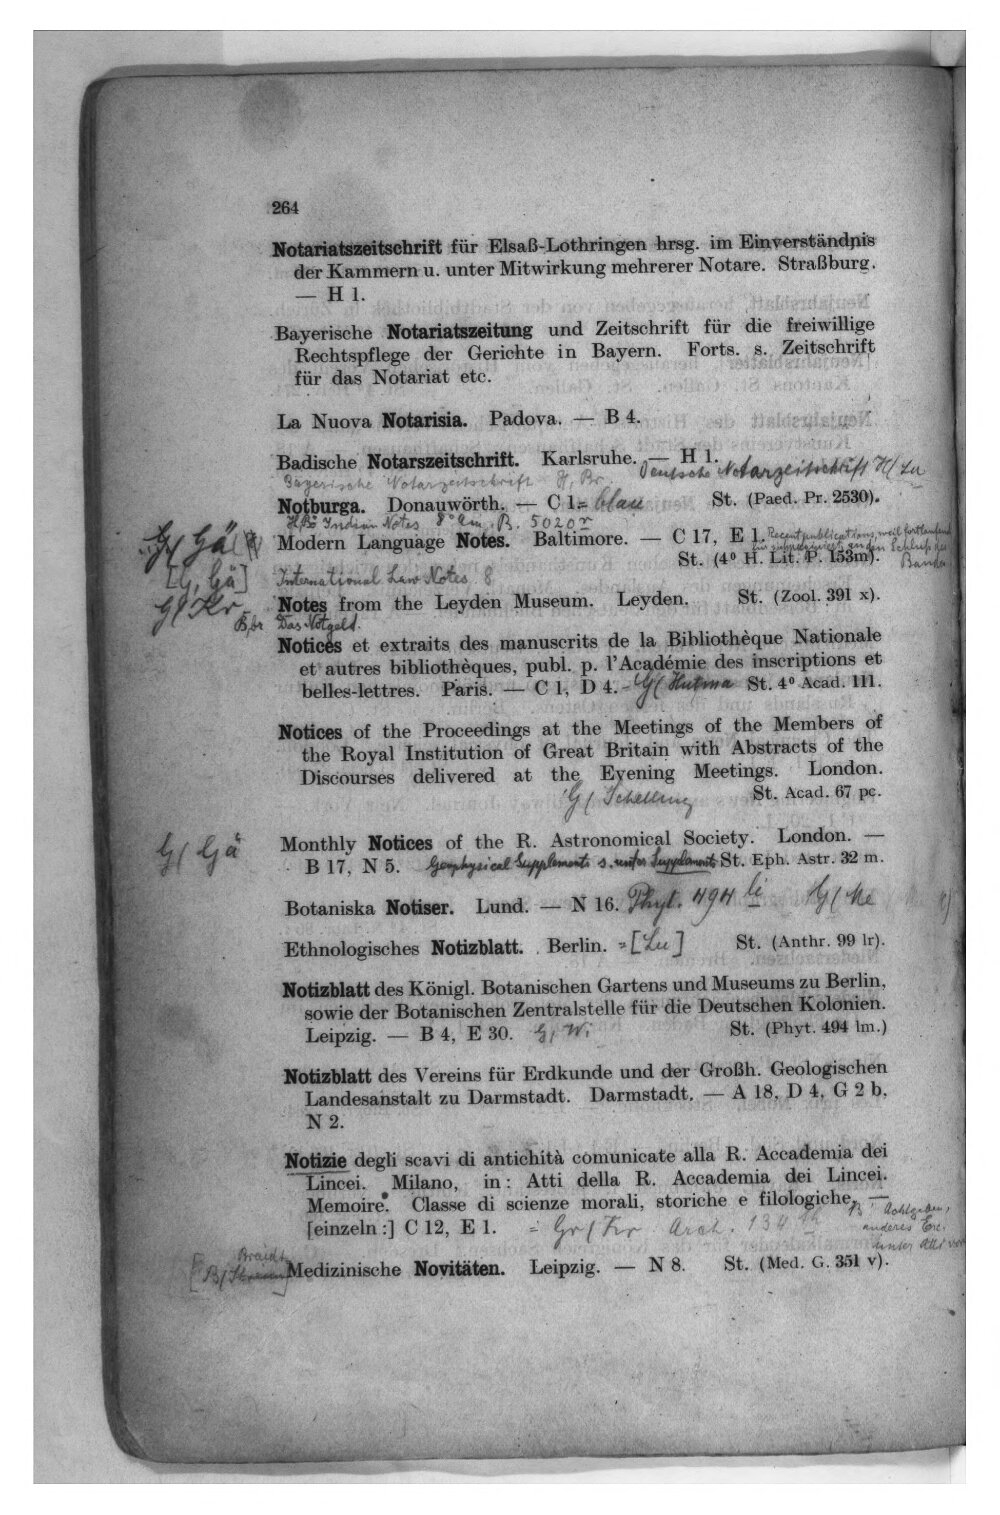 264
Notariatszeitschrift für Elsaß-Lothringen hrsg. im Einverständnis
der Kammern u. unter Mitwirkung mehrerer Notare. Straßburg.
— H 1.
Bayerische Notariatszeitung und Zeitschrift für die freiwillige
Rechtspflege der Gerichte in Bayern. Forts. s. Zeitschrift
für das Notariat etc.
La Nuova Notarisia. Padova. — B 4.
Badische Notarszeitschrift. Karlsruhe. — H 1.
Deutsche Notarzeitschrift H/ Lu
Bayerische Notarzeitschrift H, Br.
Notburga. Donauwörth. — C 1. = blau St. (Paed. Pr. 2530).
Indian Notes 8° Am. B. 5020 r
G/ Gä
Modern Language Notes. Baltimore. — C 17, E 1. Recent publications, weil fortlaufend
St. (4° H. Lit. P. 153m). an den Schluß des
Bandes
[G, Gä] International Law Notes 8
G/ Kr Notes from the Leyden Museum. Leyden. St. (Zool. 391 x).
B, br Das Notgeld.
Notices et extraits des manuscrits de la Bibliothèque Nationale
et autres bibliothèques, publ. p. l'Académie des inscriptions et
belles-lettres. Paris. — C 1, D 4. - G/ St. 4° Acad. 111.
Notices of the Proceedings at the Meetings of the Members of
the Royal Institution of Great Britain with Abstracts of the
Discourses delivered at the Evening Meetings. London.
G/ Schelling St. Acad. 67 pc.
G/ Gä Monthly Notices of the R. Astronomical Society. London. —
B 17, N 5. Geophysical Supplements s. unter Supplements St. Eph. Astr. 32 m.
Botaniska Notiser. Lund. — N 16. Phyt. 494 li G/ Me
Ethnologisches Notizblatt. Berlin. = [Lu] St. (Anthr. 99 lr).
Notizblatt des Königl. Botanischen Gartens und Museums zu Berlin,
sowie der Botanischen Zentralstelle für die Deutschen Kolonien.
Leipzig. — B 4, E 30. G/ Wi St. (Phyt. 494 lm.)
Notizblatt des Vereins für Erdkunde und der Großh. Geologischen
Landesanstalt zu Darmstadt. Darmstadt. — A 18, D 4, G 2 b,
N 2.
Notizie degli scavi di antichità comunicate alla R. Accademia dei
Lincei. Milano, in: Atti della R. Accademia dei Lincei.
Memoire. Classe di scienze morali, storiche e filologiche. —
[einzeln:] C 12, E 1. = Gr/ Kr Arch. 134 B: Achtgeben,
anderes Ex.
unter Atti vor
Braidt
Medizinische Novitäten. Leipzig. — N 8. St. (Med. G. 351 v).